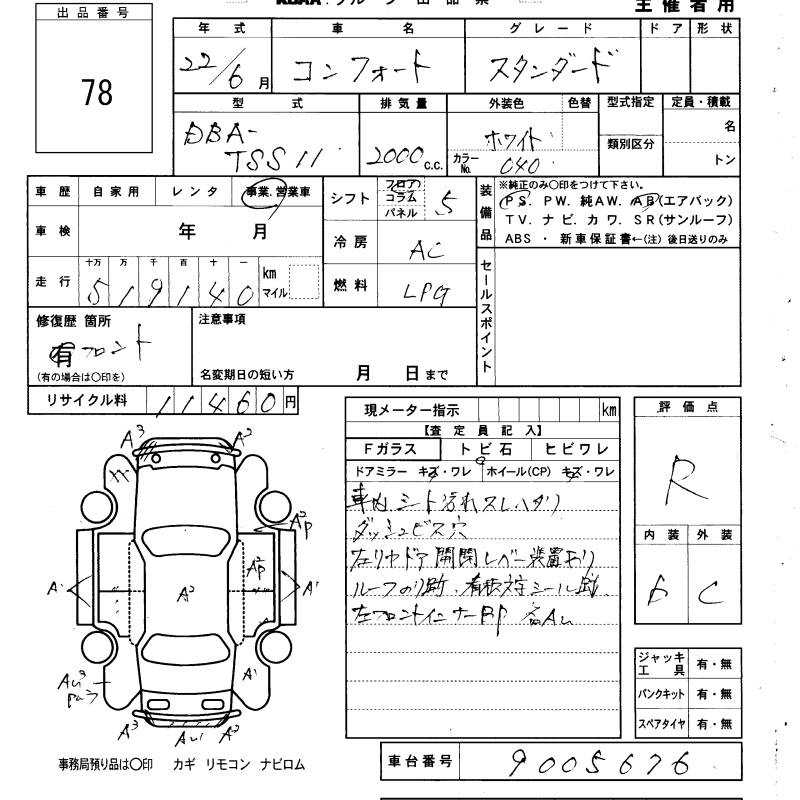 主催者用
出品番号
78
年式 車名 グレード ドア 形状
22/6月 コンフォート スタンダード
型式 排気量 外装色 色替 型式指定 定員・積載
DBA-
TSS11
2000c.c.
ホワイト
カラーNo. 040
類別区分
名
トン
車歴 自家用 レンタ 事業.営業車
シフト フロア コラム パネル 5
装備品
※純正のみ○印をつけて下さい。
PS. PW. 純AW. AB(エアバック)
TV. ナビ. カワ. SR(サンルーフ)
ABS ・ 新車保証書←(注) 後日送りのみ
車検 年 月
冷房 AC
走行 十万 万 千 百 十 一 km マイル
519140
燃料 LPG
セールスポイント
修復歴 箇所
有 フロント
(有の場合は○印を)
注意事項
名変期日の短い方 月 日まで
リサイクル料 11460円
現メーター指示 km
【査定員記入】
Fガラス トビ石 ヒビワレ
ドアミラー キズ・ワレ ホイール(CP) キズ・ワレ
車内シート汚れスレハゲリ
ダッシュビス穴
左リヤドア開閉レバー装置あり
ルーフのり跡、看板文字シール跡.
左フロントインナーBP 各AU
評価点
R
内装 外装
D C
A3 A2
A2P
A2P
A1 A2 A1
A1
AU3
A3 AU1 A2
ジャッキ工具 有・無
パンクキット 有・無
スペアタイヤ 有・無
事務局預り品は○印 カギ リモコン ナビロム
車台番号 9005676